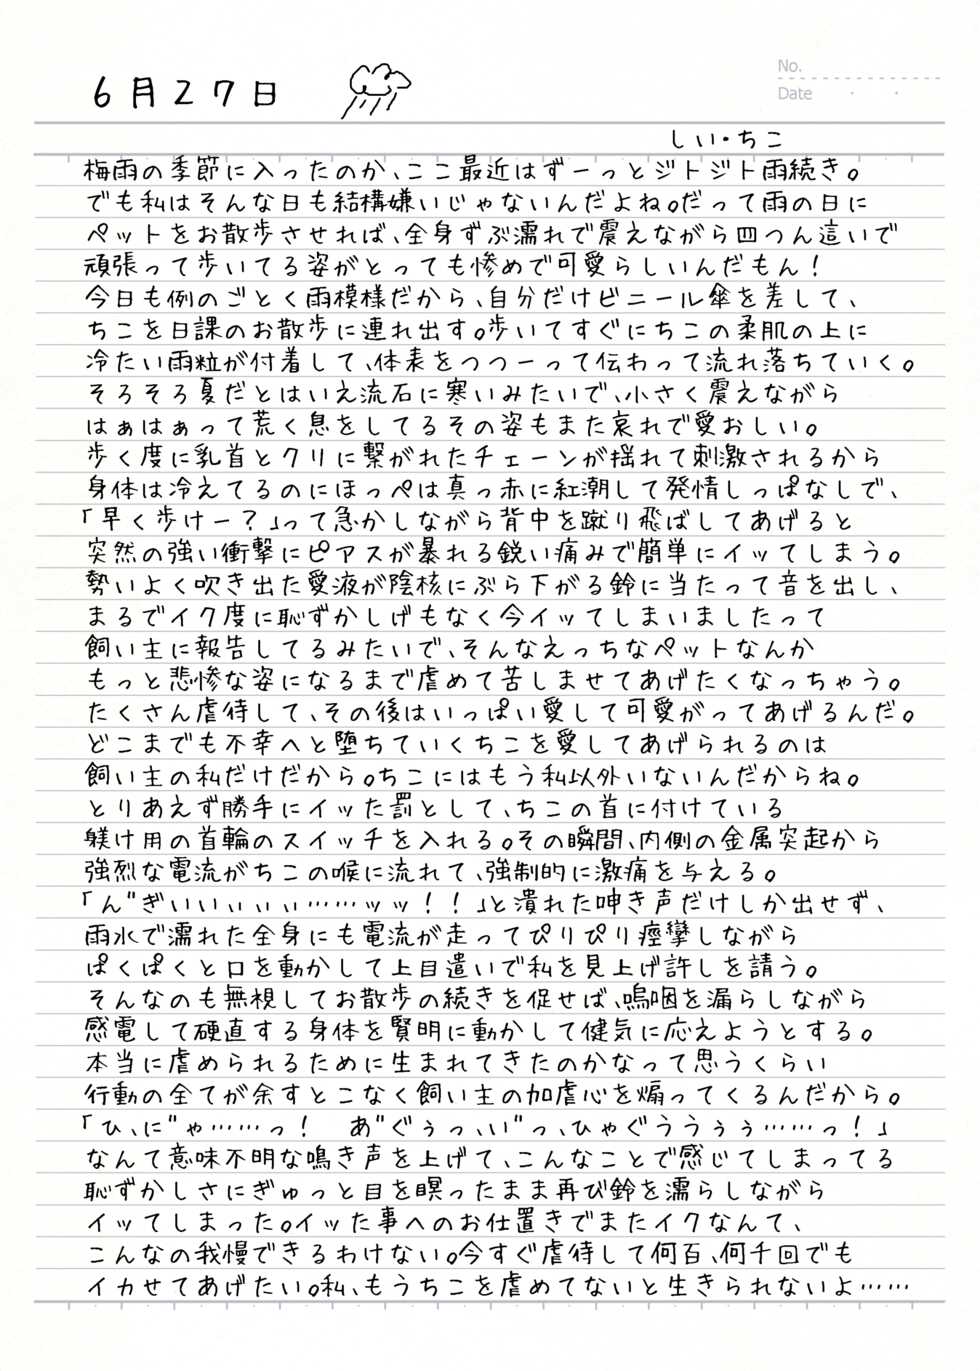 No.
6月27日
Date
しい・ちこ
梅雨の季節に入ったのか、ここ最近はずーっとジトジト雨続き。
でも私はそんな日も結構嫌いじゃないんだよね。だって雨の日に
ペットをお散歩させれば、全身ずぶ濡れで震えながら四つん這いで
頑張って歩いてる姿がとっても惨めで可愛らしいんだもん!
今日も例のごとく雨模様だから、自分だけビニール傘を差して、
ちこを日課のお散歩に連れ出す。歩いてすぐにちこの柔肌の上に
冷たい雨粒が付着して、体表をつつーって伝わって流れ落ちていく。
そろそろ夏だとはいえ流石に寒いみたいで、小さく震えながら
はぁはぁって荒く息をしてるその姿もまた哀れで愛おしい。
歩く度に乳首とクリに繋がれたチェーンが揺れて刺激されるから
身体は冷えてるのにほっぺは真っ赤に紅潮して発情しっぱなしで、
「早く歩けー?」って急かしながら背中を蹴り飛ばしてあげると
突然の強い衝撃にピアスが暴れる鋭い痛みで簡単にイッてしまう。
勢いよく吹き出た愛液が陰核にぶら下がる鈴に当たって音を出し、
まるでイク度に恥ずかしげもなく今イッてしまいましたって
飼い主に報告してるみたいで、そんなえっちなペットなんか
もっと悲惨な姿になるまで虐めて苦しませてあげたくなっちゃう。
たくさん虐待して、その後はいっぱい愛して可愛がってあげるんだ。
どこまでも不幸へと堕ちていくちこを愛してあげられるのは
飼い主の私だけだから。ちこにはもう私以外いないんだからね。
とりあえず勝手にイッた罰として、ちこの首に付けている
躾け用の首輪のスイッチを入れる。その瞬間、内側の金属突起から
強烈な電流がちこの喉に流れて、強制的に激痛を与える。
「ん゛ぎいいぃぃぃ……ッッ!!」と潰れた呻き声だけしか出せず、
雨水で濡れた全身にも電流が走ってぴりぴり痙攣しながら
ぱくぱくと口を動かして上目遣いで私を見上げ許しを請う。
そんなのも無視してお散歩の続きを促せば、嗚咽を漏らしながら
感電して硬直する身体を賢明に動かして健気に応えようとする。
本当に虐められるために生まれてきたのかなって思うくらい
行動の全てが余すとこなく飼い主の加虐心を煽ってくるんだから。
「ひ、に゛ゃ……っ! あ゛ぐぅっ、い゛っ、ひゃぐううぅぅ……っ!」
なんて意味不明な鳴き声を上げて、こんなことで感じてしまってる
恥ずかしさにぎゅっと目を瞑ったまま再び鈴を濡らしながら
イッてしまった。イッた事へのお仕置きでまたイクなんて、
こんなの我慢できるわけない。今すぐ虐待して何百、何千回でも
イカせてあげたい。私、もうちこを虐めてないと生きられないよ……